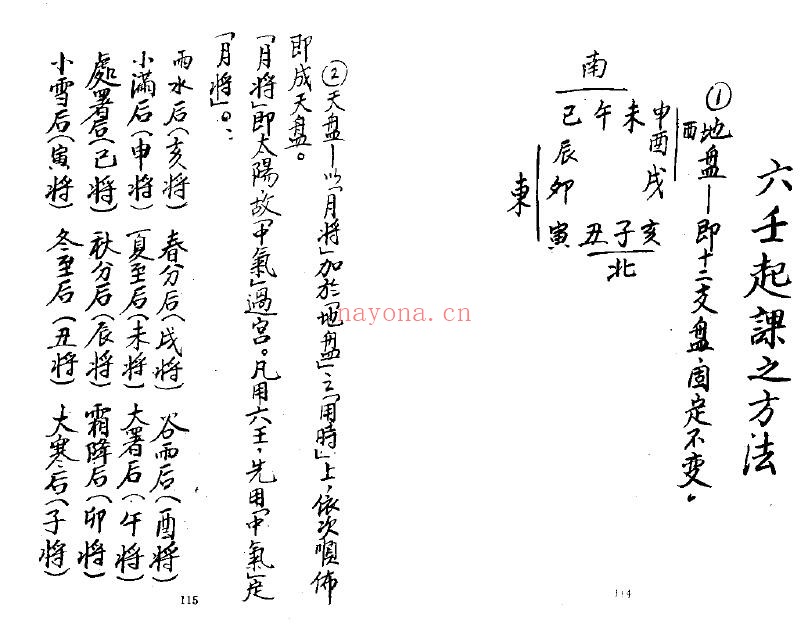 六壬起課之方法
①地盤—即十二支盤，固定不變。
南
巳午未申
辰 酉 西
東
卯 戌
寅丑子亥
北
114
②天盤—以「月將」加於「地盤」之「用時」上，依次順佈
即成天盤。
「月將」即太陽，故「中氣」過宮。凡用六壬，先用「中氣」定
「月將」。：
雨水后（亥將） 春分后（戌將） 谷雨后（酉將）
小滿后（申將） 夏至后（未將） 大署后（午將）
處署后（巳將） 秋分后（辰將） 霜降后（卯將）
小雪后（寅將） 冬至后（丑將） 大寒后（子將）
115
nayona.cn